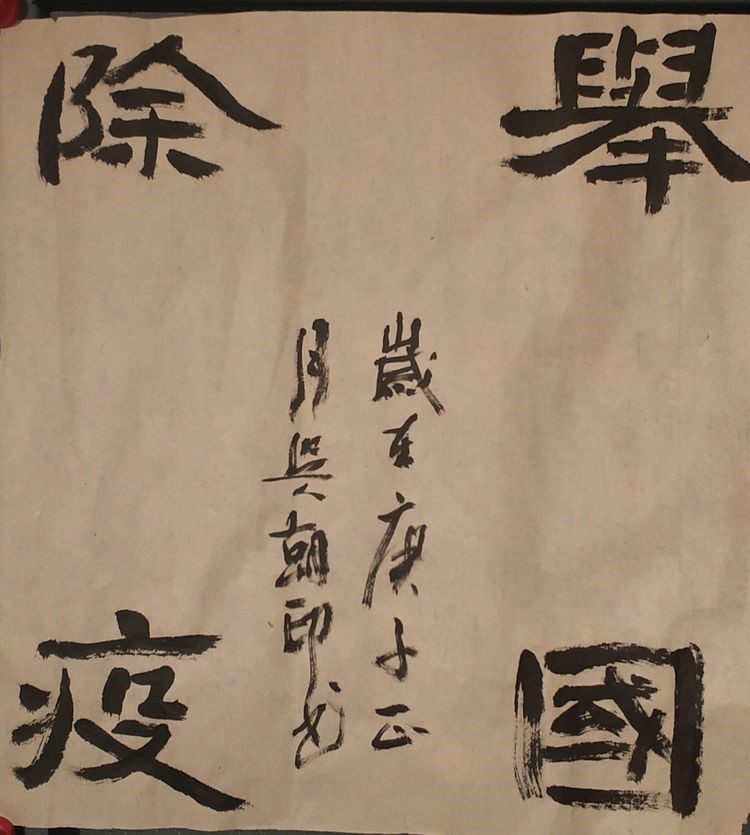 舉國
除疫
歲在庚子正
月吳朝印書